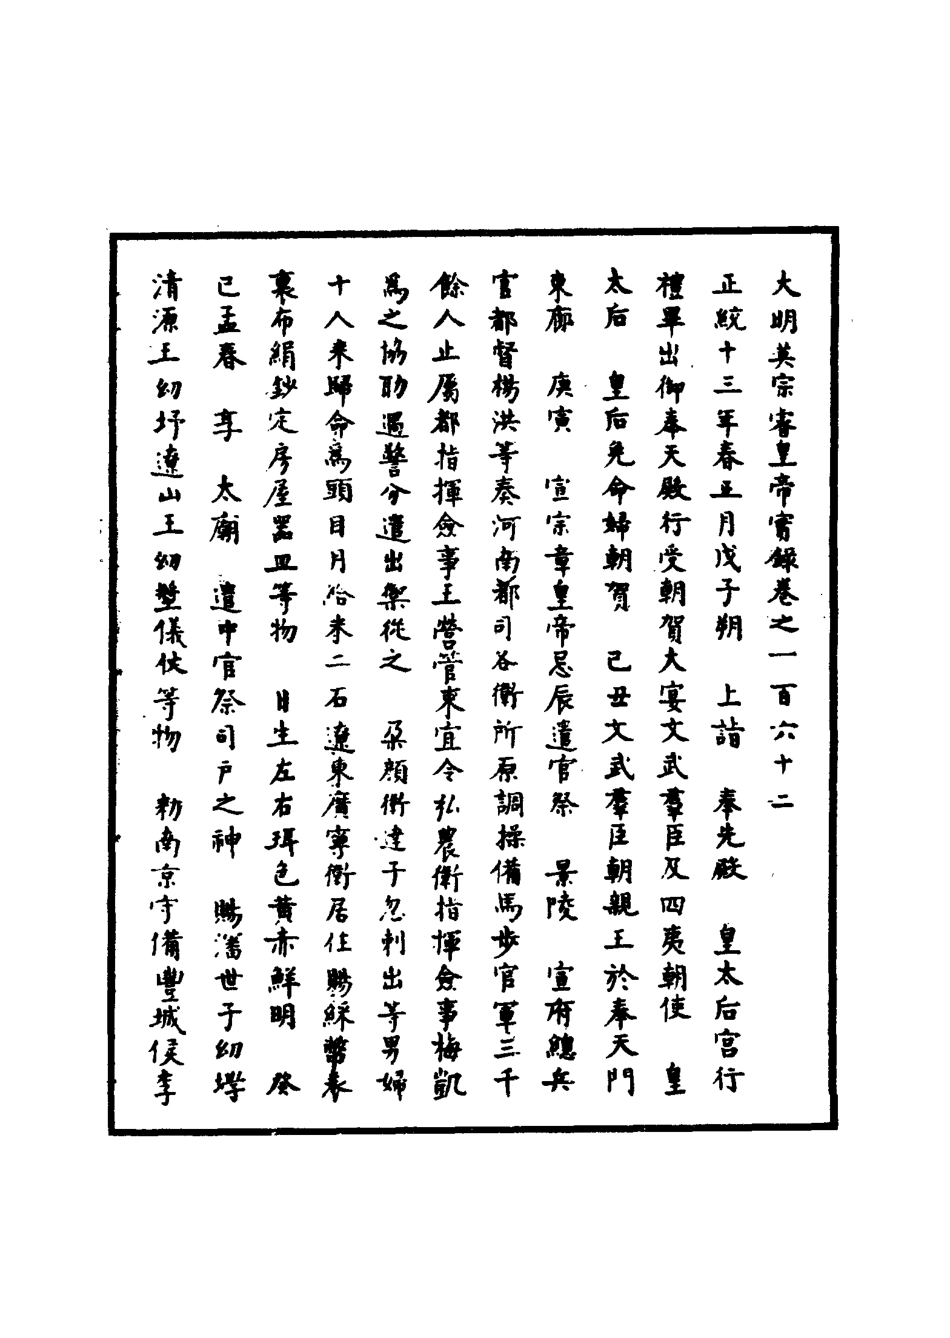 大明英宗睿皇帝實錄卷之一百六十二
正統十三年春正月戊子朔　上詣　奉先殿　皇太后宮行
禮畢出御奉天殿行受朝賀大宴文武羣臣及四夷朝使　皇
太后　皇后免命婦朝賀　己丑文武羣臣朝親王於奉天門
東廊　庚寅　宣宗章皇帝忌辰遣官祭　景陵　宣府總兵
官都督楊洪等奏河南都司各衛所原調操備馬步官軍三千
餘人止屬都指揮僉事王營管束宜令弘農衛指揮僉事梅凱
為之協助遇警分遣出禦從之　朵顏衛達子忽剌出等男婦
十人來歸命為頭目月給米二石遼東廣寧衛居住賜綵幣表
裏布絹鈔定房屋器皿等物　日生左右珥色黃赤鮮明　癸
巳孟春　享　太廟　遣中官祭司戶之神　賜瀋世子幼㘒
清源王幼㘧遼山王幼塹儀仗等物　勑南京守備豐城侯李